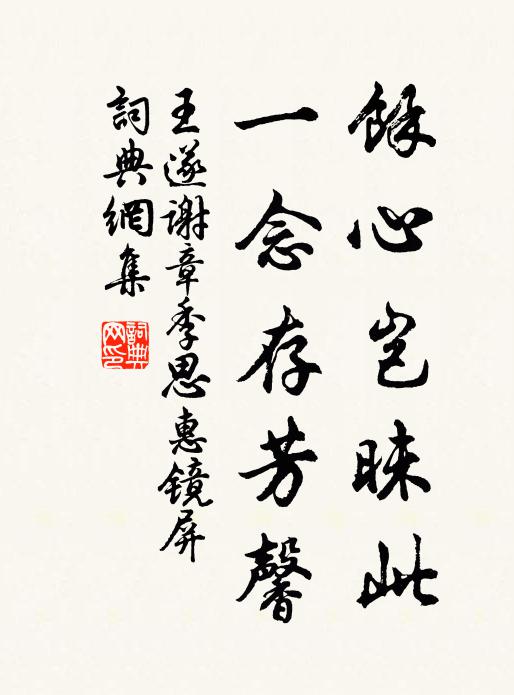 餘心豈昧此
一念存芳馨
王遂謝章季思惠镜屏
詞典網集
詞典网印